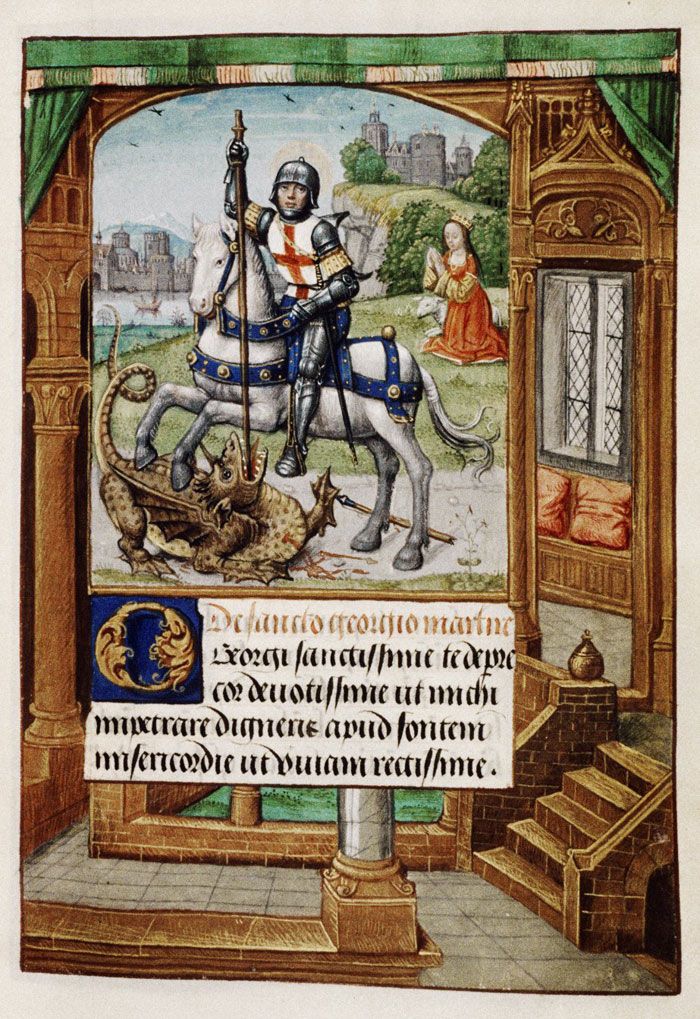 De sancto georgio martire
O Georgi sanctissime te depre
cor deuotissime ut michi
impetrare digneris apud fontem
misericordie ut viuam rectissime.